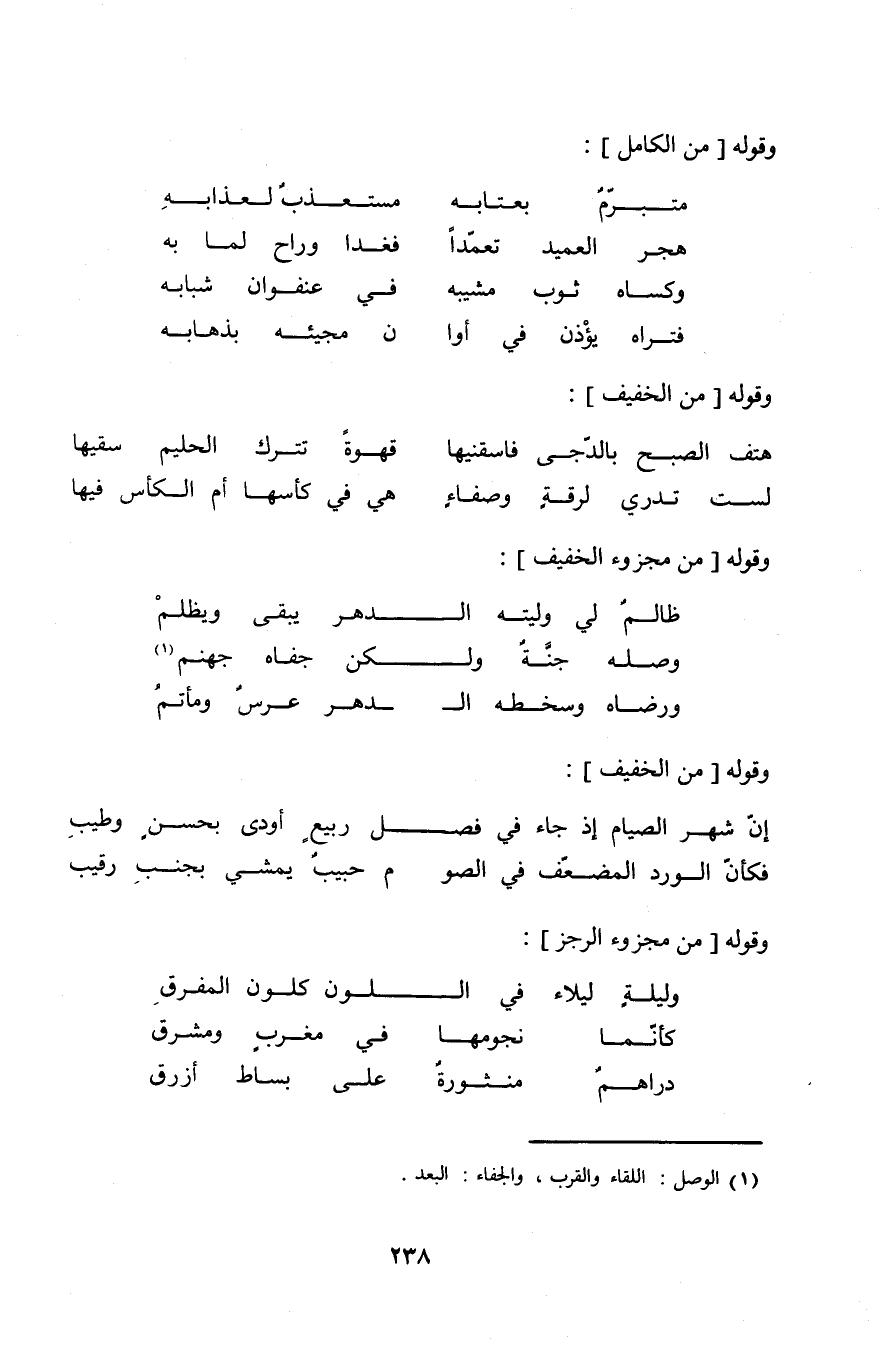 وقوله [ من الكامل ] :
متبرّمٌ بعتابه مستعذبٌ لعذابهِ
هجر العميد تعمّداً فغدا وراح لما به
وكساه ثوب مشيبه في عنفوان شبابه
فتراه يؤْذن في أوا ن مجيئه بذهابه
وقوله [ من الخفيف ] :
هتف الصبح بالدّجى فاسقنيها قهوةً تترك الحليم سقيها
لست تدري لرقةٍ وصفاءٍ هي في كأسها أم الكأس فيها
وقوله [ من مجزوء الخفيف ] :
ظالمٌ لي وليته الـدهر يبقى ويظلمْ
وصله جنَّةٌ ولـكن جفاه جهنم(١)
ورضاه وسخطه الـ ـدهر عرسٌ ومأتمُ
وقوله [ من الخفيف ] :
إنّ شهر الصيام إذ جاء في فصـل ربيعٍ أودى بحسنٍ وطيبِ
فكأنّ الورد المضعّف في الصو م حبيبٌ يمشي بجنبِ رقيب
وقوله [ من مجزوء الرجز ] :
وليلةٍ ليلاء في الـلون كلون المفرقِ
كأنّما نجومها في مغربٍ ومشرق
دراهمٌ منثورةٌ على بساط أزرق
(١) الوصل : اللقاء والقرب ، والجفاء : البعد .
٢٣٨